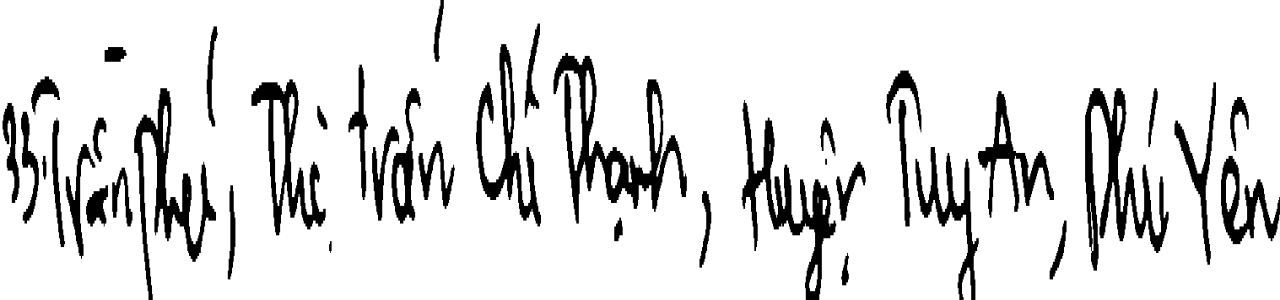 33 Trần Phú, Thị trấn Chí Thạnh, Huyện Tuy An, Phú Yên